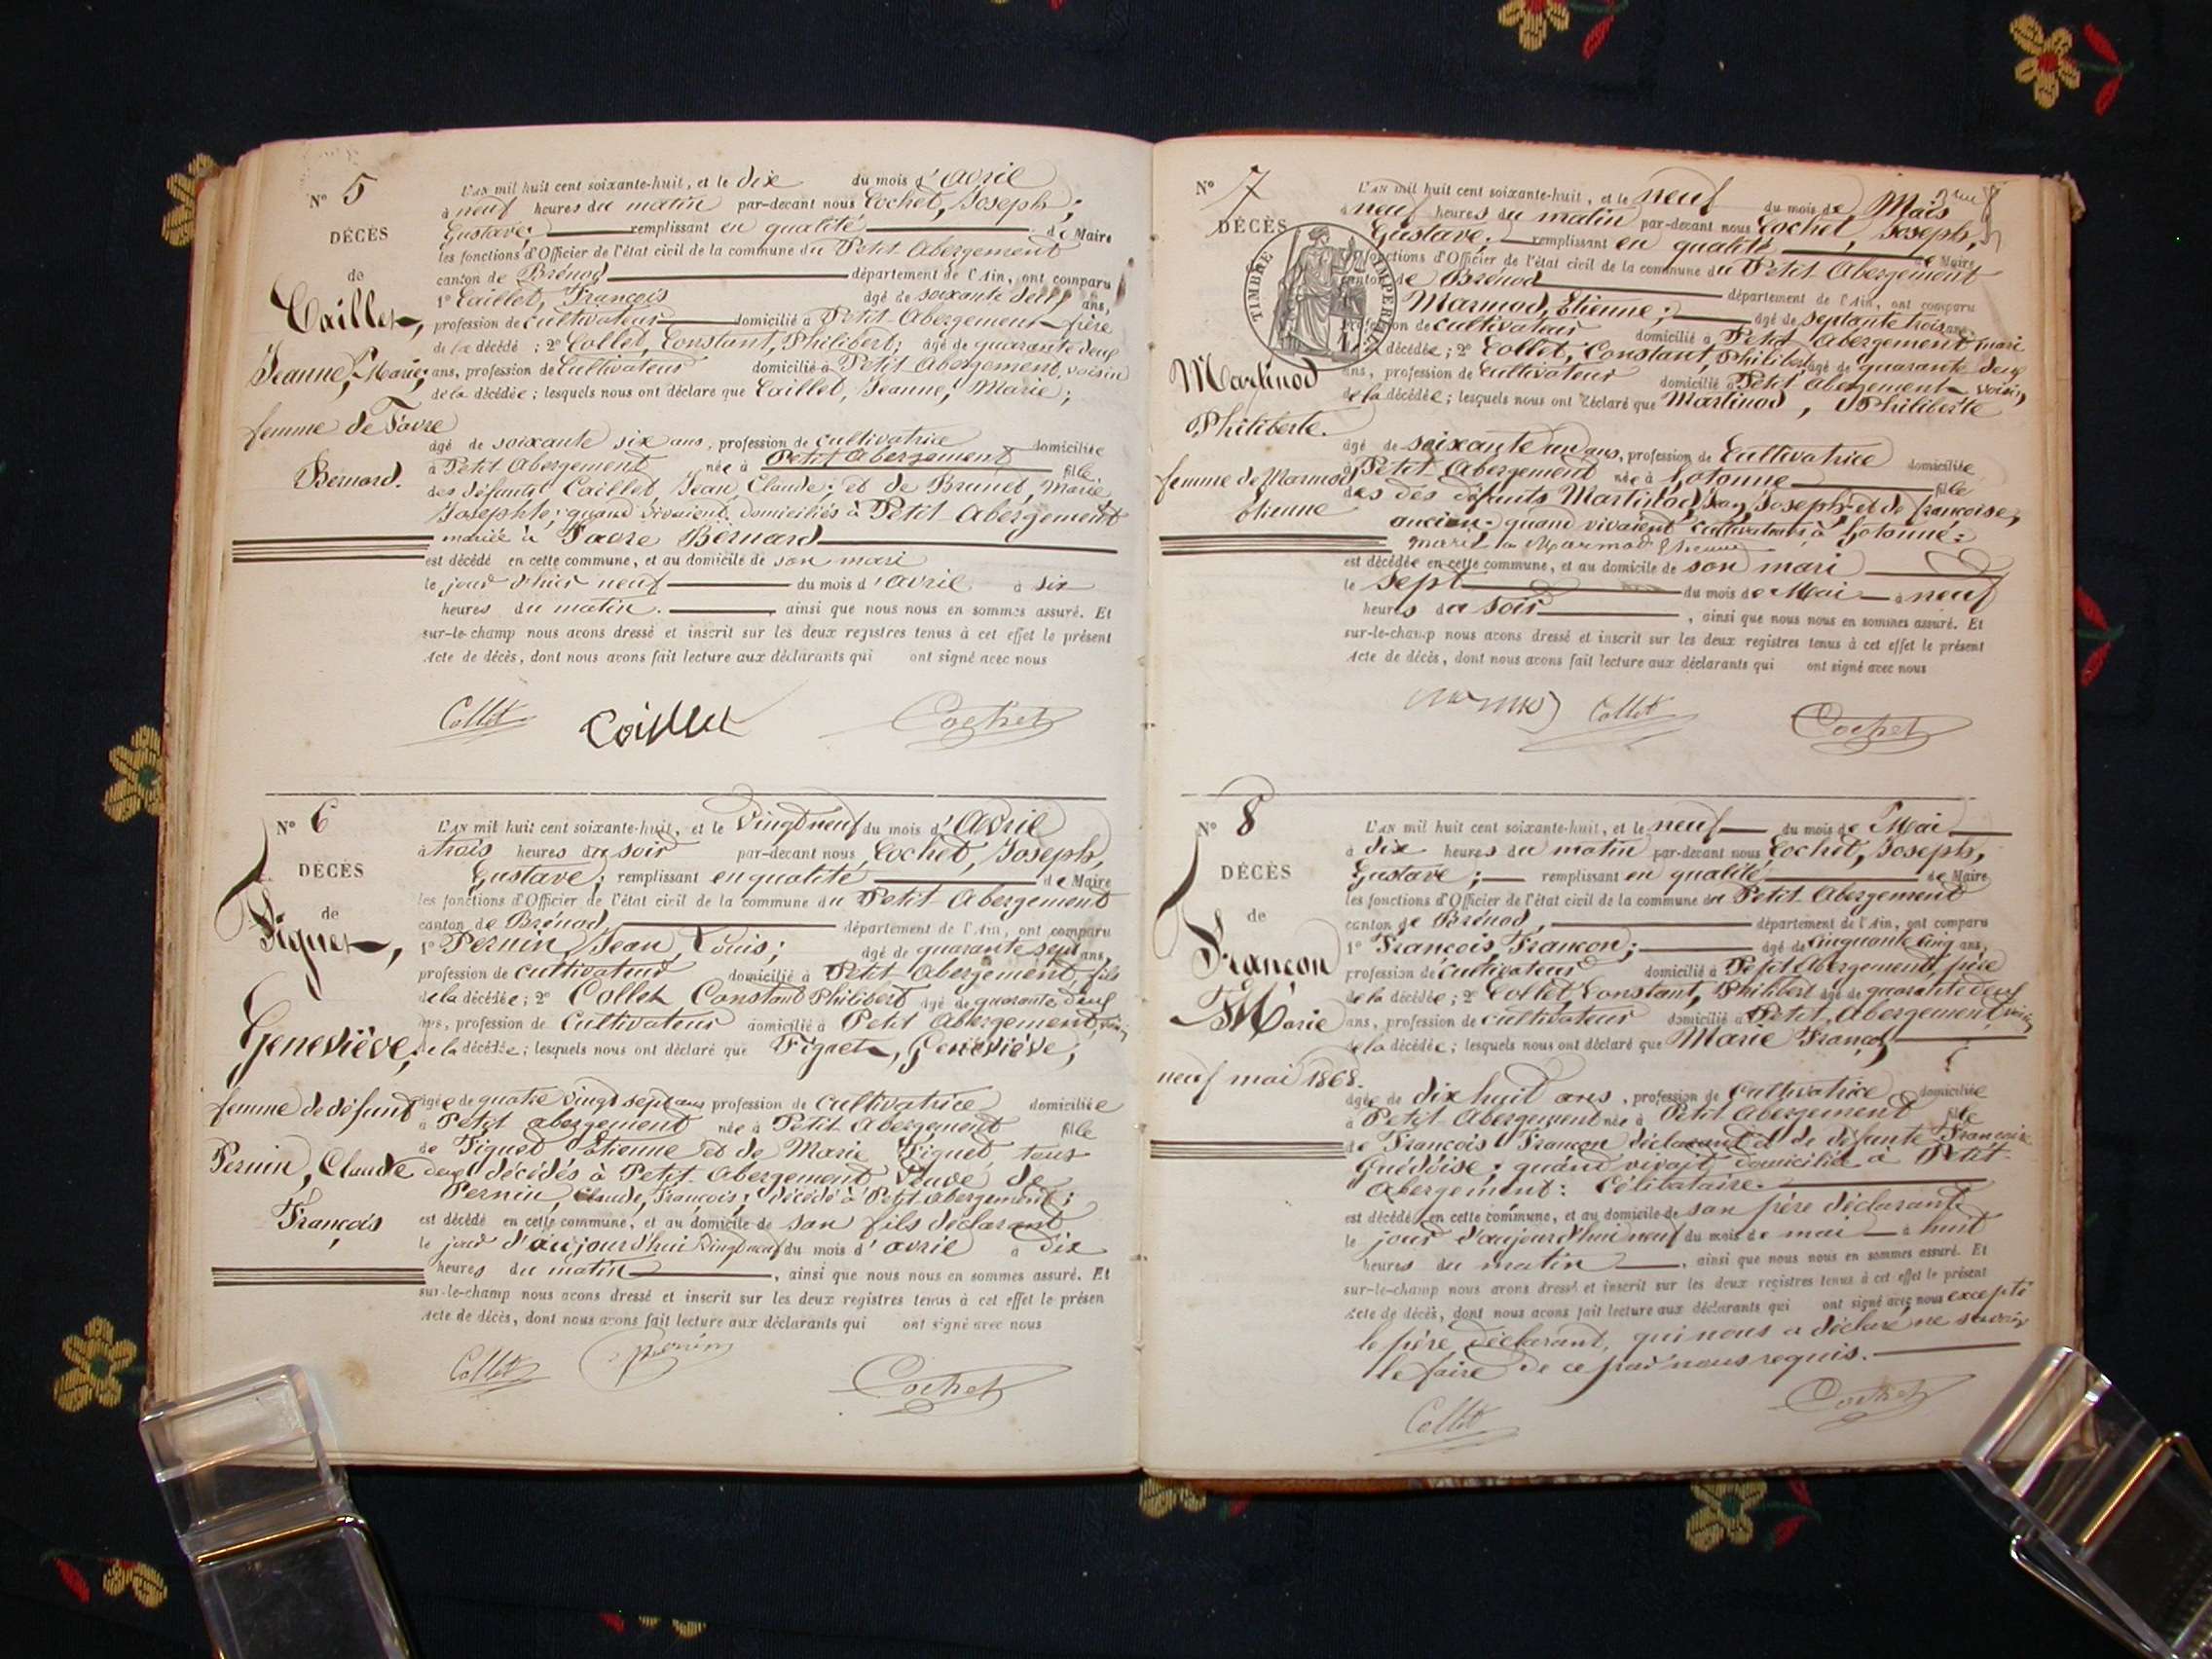 N° 5
DÉCÈS
de
Caillet,
Jeanne, Marie;
femme de Favre
Bernard.
L'AN mil huit cent soixante-huit, et le dix du mois d'avril
à neuf heures du matin par-devant nous Cochet, Joseph,
Gustave; remplissant en qualité de Maire
les fonctions d'Officier de l'état civil de la commune du Petit Abergement
canton de Brénod département de l'Ain, ont comparu
1° Caillet, François âgé de soixante deux ans,
profession de cultivateur domicilié à Petit Abergement frère
de la décédé ; 2° Collet, Constant, Philibert; âgé de quarante deux
ans, profession de Cultivateur domicilié à Petit Abergement, voisin
de la décédée ; lesquels nous ont déclaré que Caillet, Jeanne, Marie;
âgé de soixante six ans, profession de cultivatrice domiciliée
à Petit Abergement née à Petit Abergement fille
des défunts Caillet, Jean, Claude; et de Brunet, Marie
Josephte; quand vivaient domiciliés à Petit-Abergement
mariée à Favre Bernard
est décédé en cette commune, et au domicile de son mari
le jour d'hier neuf du mois d'avril à six
heures du matin. ainsi que nous nous en sommes assuré. Et
sur-le-champ nous avons dressé et inscrit sur les deux registres tenus à cet effet le présent
Acte de décès, dont nous avons fait lecture aux déclarants qui ont signé avec nous
Collet Caillet Cochet
N° 6
DÉCÈS
de
Figuet,
Geneviève;
femme de défunt
Pernin, Claude
François
L'AN mil huit cent soixante-huit, et le vingt neuf du mois d'Avril
à trois heures du soir par-devant nous Cochet, Joseph,
Gustave; remplissant en qualité de Maire
les fonctions d'Officier de l'état civil de la commune du Petit-Abergement
canton de Brénod, département de l'Ain, ont comparu
1° Pernin, Jean, Louis; âgé de quarante sept ans,
profession de cultivateur domicilié à Petit-Abergement, fils
de la décédée ; 2° Collet Constant Philibert âgé de quarante deux
ans, profession de Cultivateur domicilié à Petit Abergement,
de la décédée ; lesquels nous ont déclaré que Figuet, Geneviève,
âgée de quatre vingt sept ans profession de Cultivatrice domiciliée
à Petit abergement née à Petit Abergement fille
de Figuet Etienne et de Marie Figuet tous
deux décédés à Petit-Abergement Veuve de
Pernin, Claude, François; décédé à Petit abergement;
est décédé en cette commune, et au domicile de son fils déclarant
le jour d'aujourd'hui vingt neuf du mois d'avril à dix
heures du matin, ainsi que nous nous en sommes assuré. Et
sur-le-champ nous avons dressé et inscrit sur les deux registres tenus à cet effet le présen
Acte de décès, dont nous avons fait lecture aux déclarants qui ont signé avec nous
Collet Pernin Cochet
N° 7
DÉCÈS
TIMBRE IMPERIAL
Martinod
Philiberte.
femme de Marmod
Etienne
L'AN mil huit cent soixante-huit, et le neuf du mois de Mais
à neuf heures du matin par-devant nous Cochet, Joseph,
Gustave; remplissant en qualité de Maire
fonctions d'Officier de l'état civil de la commune du Petit-Abergement
canton de Brénod département de l'Ain, ont comparu
Marmod, Etienne; âgé de septante trois ans,
profession de cultivateur domicilié à Petit Abergement mari
décédée ; 2° Collet, Constant, Philibert âgé de quarante deux
ans, profession de cultivateur domicilié à Petit Abergement voisin
de la décédée ; lesquels nous ont déclaré que Martinod, Philiberte
âgé de soixante un ans, profession de Cultivatrice domiciliée
à Petit-Abergement née à Lotonne fille
des des défunts Martinod, Jean, Joseph et de françoise,
ancian. quand vivaient cultivateurs à Lotonne:
Marmod Etienne
est décédée en cette commune, et au domicile de son mari
le sept du mois de Mai à neuf
heures du soir, ainsi que nous nous en sommes assuré. Et
sur-le-champ nous avons dressé et inscrit sur les deux registres tenus à cet effet le présent
Acte de décès, dont nous avons fait lecture aux déclarants qui ont signé avec nous
Collet Cochet
N° 8
DÉCÈS
de
Françon
Marie
neuf mai 1868.
L'AN mil huit cent soixante-huit, et le neuf du mois de Mai
à dix heures du matin par-devant nous Cochet, Joseph,
Gustave; remplissant en qualité de Maire
les fonctions d'Officier de l'état civil de la commune du Petit-Abergement
canton de Brénod, département de l'Ain, ont comparu
1° François, Françon; âgé de cinquante cinq ans,
profession de cultivateur domicilié à Petit Abergement, père
de la décédée ; 2° Collet, Constant, Philibert âgé de quarante deux
ans, profession de cultivateur domicilié à Petit, Abergement voisin
de la décédée ; lesquels nous ont déclaré que Marie Françon
âgée de dix huit ans, profession de Cultivatrice domiciliée
à Petit Abergement née à Petit Abergement fille
de François Françon déclarant et de défunte Françoise
quand vivait domiciliée à Petit-
Abergement: Célibataire.
est décédé en cette commune, et au domicile de son père déclarant
le jour d'aujourd'hui neuf du mois de mai à huit
heures du matin, ainsi que nous nous en sommes assuré. Et
sur-le-champ nous avons dressé et inscrit sur les deux registres tenus à cet effet le présent
Acte de décès, dont nous avons fait lecture aux déclarants qui ont signé avec nous excepté
le père déclarant, qui nous a déclaré ne savoir
le faire de ce par nous requis.
Collet Cochet